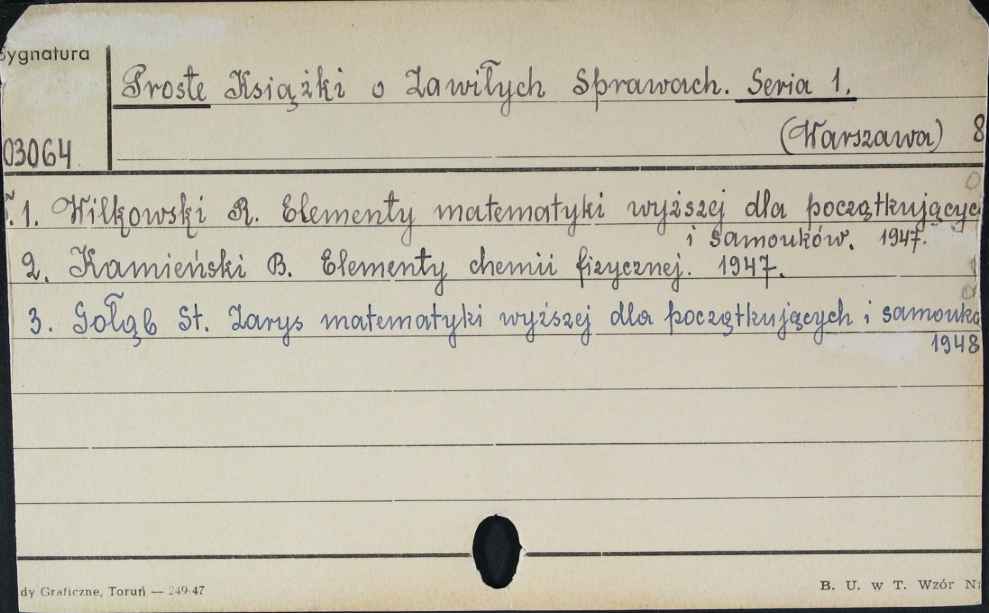 Sygnatura
Proste Książki o Zawiłych Sprawach. Seria 1.
(Warszawa) 8
03064
1. Wilkowski R. Elementy matematyki wyższej dla początkujących
i samouków. 1947.
2. Kamieński B. Elementy chemii fizycznej. 1947.
3. Gołąb St. Zarys matematyki wyższej dla początkujących i samouków
1948
dy Graficzne, Toruń — 249-47
B. U. w T. Wzór N